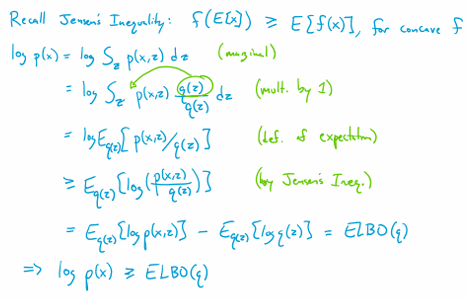 Recall Jensen's Inequality: f(E[x]) ≥ E[f(x)], for concave f
log p(x) = log ∫_z p(x,z) dz (marginal)
= log ∫_z p(x,z) q(z)/q(z) dz (mult. by 1)
= log E_q(z)[p(x,z)/q(z)] (def. of expectation)
≥ E_q(z)[log(p(x,z)/q(z))] (by Jensen's Ineq.)
= E_q(z)[log p(x,z)] - E_q(z)[log q(z)] = ELBO(q)
=> log p(x) ≥ ELBO(q)